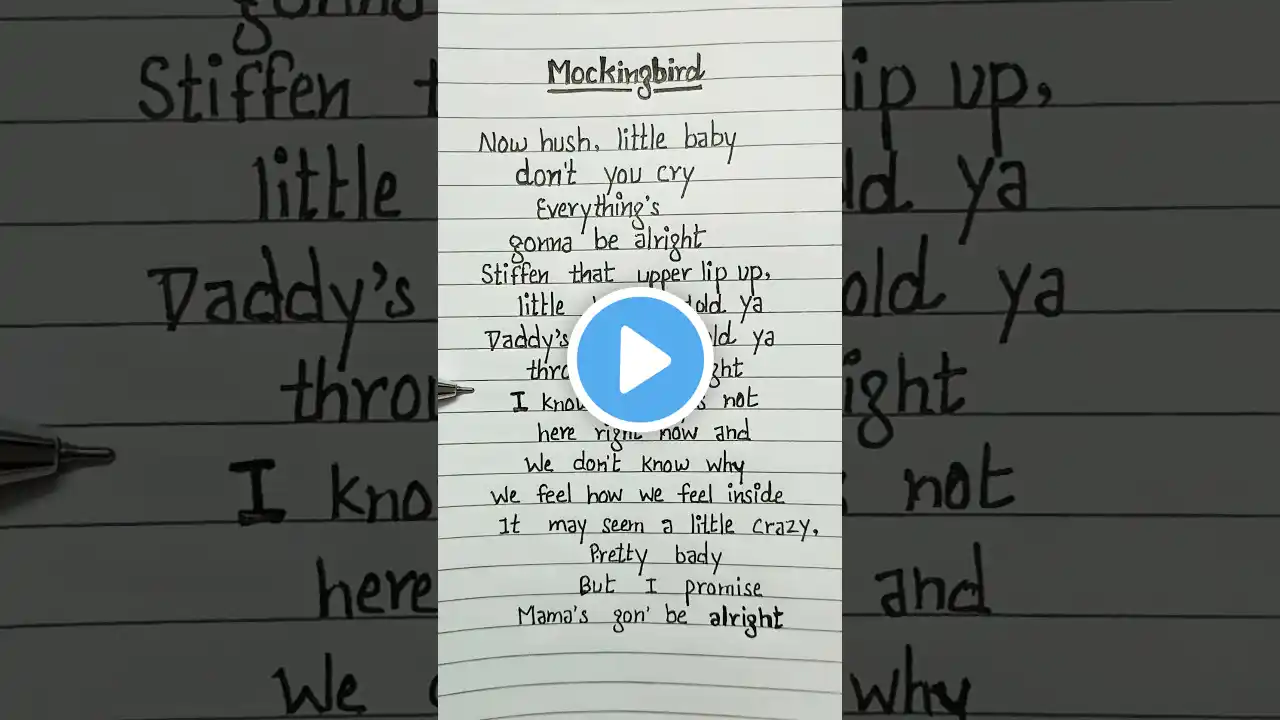 Mockingbird
Now hush, little baby
don't you cry
Everything's
gonna be alright
Stiffen that upper lip up,
little told ya
Daddy's ya
I not
here right now and
We don't know why
We feel how we feel inside
It may seem a little crazy,
Pretty bady
But I promise
Mama's gon' be alright